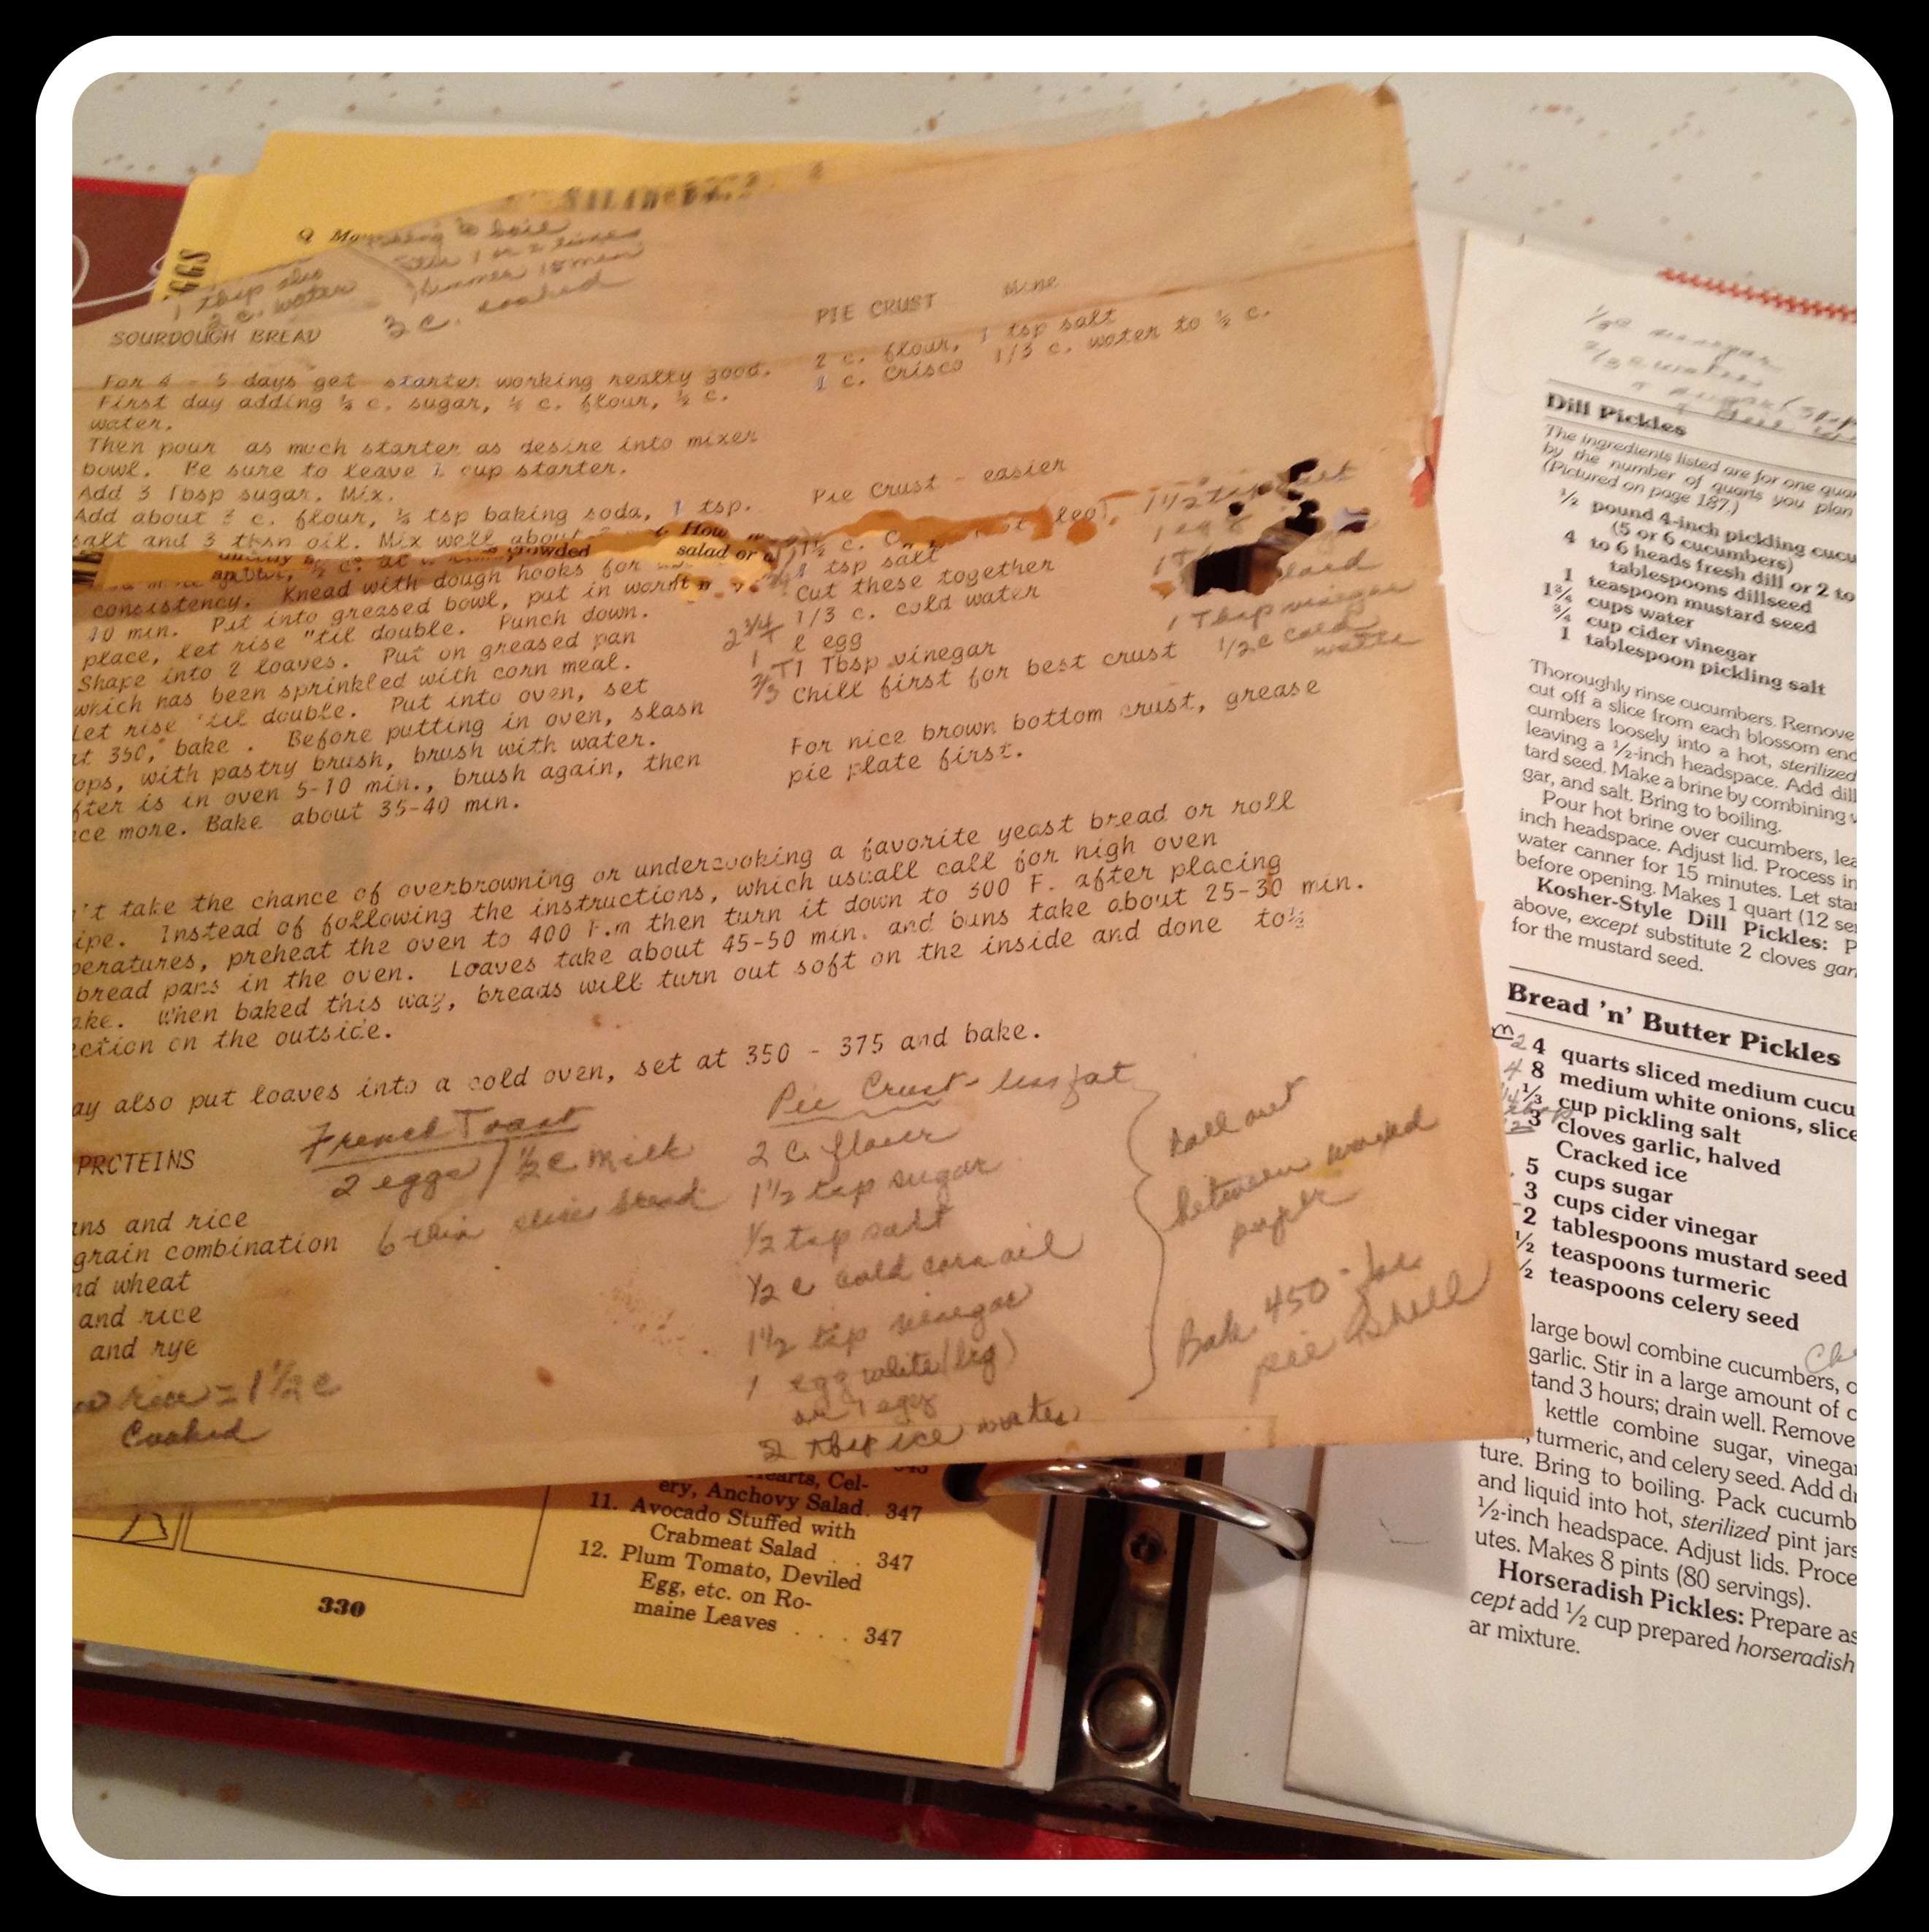 1 tbsp
2 c. water
to boil
Stir 1 or 2 times
Simmer 15 min
3 c. cooked
SOURDOUGH BREAD
For 4 - 5 days get starter working really good.
First day adding ½ c. sugar, ½ c. flour, ½ c.
water.
Then pour as much starter as desire into mixer
bowl. Be sure to leave 1 cup starter.
Add 3 Tbsp sugar. Mix.
Add about 3 c. flour, ½ tsp baking soda, 1 tsp.
salt and 3 tbsn oil. Mix well about
consistency. Knead with dough hooks for
10 min. Put into greased bowl, put in warm
place, let rise "til double. Punch down.
Shape into 2 loaves. Put on greased pan
which has been sprinkled with corn meal.
Let rise 'til double. Put into oven, set
at 350, bake. Before putting in oven, slash
ops, with pastry brush, brush with water.
fter is in oven 5-10 min., brush again, then
ce more. Bake about 35-40 min.
PIE CRUST Mine
2 c. flour, 1 tsp salt
1 c. Crisco 1/3 c. water to ½ c.
Pie Crust - easier
1 tsp salt
Cut these together
1/3 c. cold water
1 egg
1 Tbsp vinegar
Chill first for best crust
2 3/4
1
1 egg
lard
1 Tbsp vinegar
1/2 c cold
water
For nice brown bottom crust, grease
pie plate first.
't take the chance of overbrowning or undercooking a favorite yeast bread or roll
ipe. Instead of following the instructions, which usuall call for high oven
peratures, preheat the oven to 400 F.m then turn it down to 300 F. after placing
bread pans in the oven. Loaves take about 45-50 min. and buns take about 25-30 min.
ake. When baked this way, breads will turn out soft on the inside and done to
ection on the outside.
ay also put loaves into a cold oven, set at 350 - 375 and bake.
PROTEINS
ns and rice
grain combination
nd wheat
and rice
and rye
rice = 1 1/2 c
Cooked
French Toast
2 eggs / ½ c milk
6 thin slices bread
Pie Crust - less fat
2 c. flour
1 1/2 tsp sugar
1/2 tsp salt
1/2 c cold corn oil
1 1/2 tsp vinegar
1 egg white (big)
or 1 egg
2 Tbsp ice water
Roll out
between waxed
paper
Bake 450° for
pie shell
How
crowded
salad or a
Hearts, Cel-
ery, Anchovy Salad. 347
11. Avocado Stuffed with
Crabmeat Salad . . 347
12. Plum Tomato, Deviled
Egg, etc. on Ro-
maine Leaves . . . 347
330
Dill Pickles
The ingredients listed are for one quar
by the number of quarts you plan
(Pictured on page 187.)
½ pound 4-inch pickling cucu
(5 or 6 cucumbers)
4 to 6 heads fresh dill or 2 to
tablespoons dillseed
1 teaspoon mustard seed
1¾ cups water
¾ cup cider vinegar
1 tablespoon pickling salt
Thoroughly rinse cucumbers. Remove
cut off a slice from each blossom end
cumbers loosely into a hot, sterilized
leaving a ½-inch headspace. Add dill
tard seed. Make a brine by combining w
gar, and salt. Bring to boiling.
Pour hot brine over cucumbers, lea
inch headspace. Adjust lid. Process in
water canner for 15 minutes. Let sta
before opening. Makes 1 quart (12 se
Kosher-Style Dill Pickles: P
above, except substitute 2 cloves gar
for the mustard seed.
Bread 'n' Butter Pickles
4 quarts sliced medium cucu
8 medium white onions, slice
⅓ cup pickling salt
3 cloves garlic, halved
Cracked ice
5 cups sugar
3 cups cider vinegar
2 tablespoons mustard seed
½ teaspoons turmeric
½ teaspoons celery seed
large bowl combine cucumbers, o
garlic. Stir in a large amount of c
tand 3 hours; drain well. Remove
kettle combine sugar, vinegar
, turmeric, and celery seed. Add dr
ture. Bring to boiling. Pack cucumb
and liquid into hot, sterilized pint jars
½-inch headspace. Adjust lids. Proce
utes. Makes 8 pints (80 servings).
Horseradish Pickles: Prepare as
cept add ½ cup prepared horseradish
ar mixture.